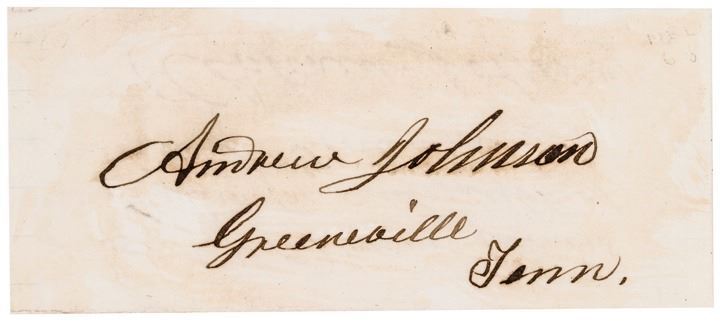 Andrew Johnson
Greeneville
Tenn.